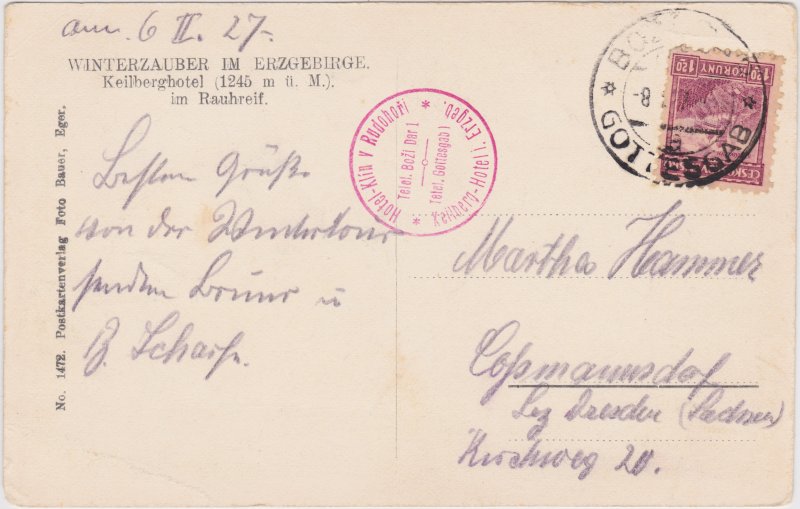 am. 6 II. 27.
WINTERZAUBER IM ERZGEBIRGE.
Keilberghotel (1245 m ü. M.).
im Rauhreif.
No. 1472. Postkartenverlag Foto Bauer, Eger.
Hotel-Klín v Rudohoří
Telef. Boži Dar 1
Telef. Gottesgab 1
Keilberg-Hotel i. Erzgeb.
-8
GOTTESGAB
1.20 KORUNY 1.20
Besten Grüße
von der Wintertour
senden Bruno u
Martha Hammer
Coßmannsdorf
Bez Dresden (Sachsen)
Kirchweg 20.